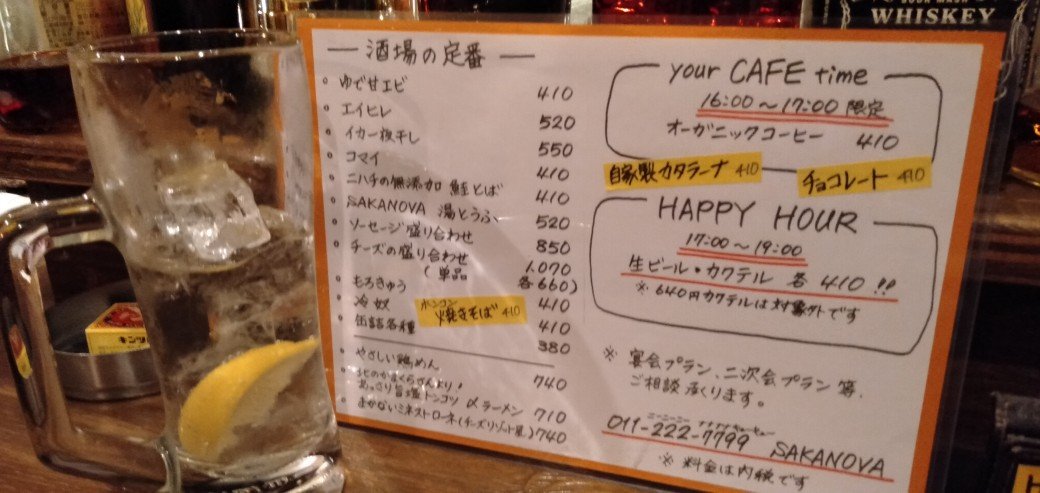 酒場の定番
ゆで甘エビ 410
エイヒレ 520
イカ一夜干し 550
コマイ 410
ニハチの無添加 鮭とば 410
SAKANOVA 湯とうふ 520
ソーセージ盛り合わせ 850
チーズの盛り合わせ 1.070
(単品 各660)
もろきゅう 410
冷奴 410
缶詰各種 380
ホンコン
焼きそば 410
やさしい鶏めん 740
あっさり旨塩トンコツ 〆ラーメン 710
まかないミネストローネ(チーズリゾット風) 740
your CAFE time
16:00〜17:00 限定
オーガニックコーヒー 410
自家製カタラーナ 410
チョコレート 410
HAPPY HOUR
17:00〜19:00
生ビール・カクテル 各410!!
※640円カクテルは対象外です
※ 宴会プラン、二次会プラン 等、
ご相談 承ります。
011-222-7799 SAKANOVA
※ 料金は内税です
WHISKEY